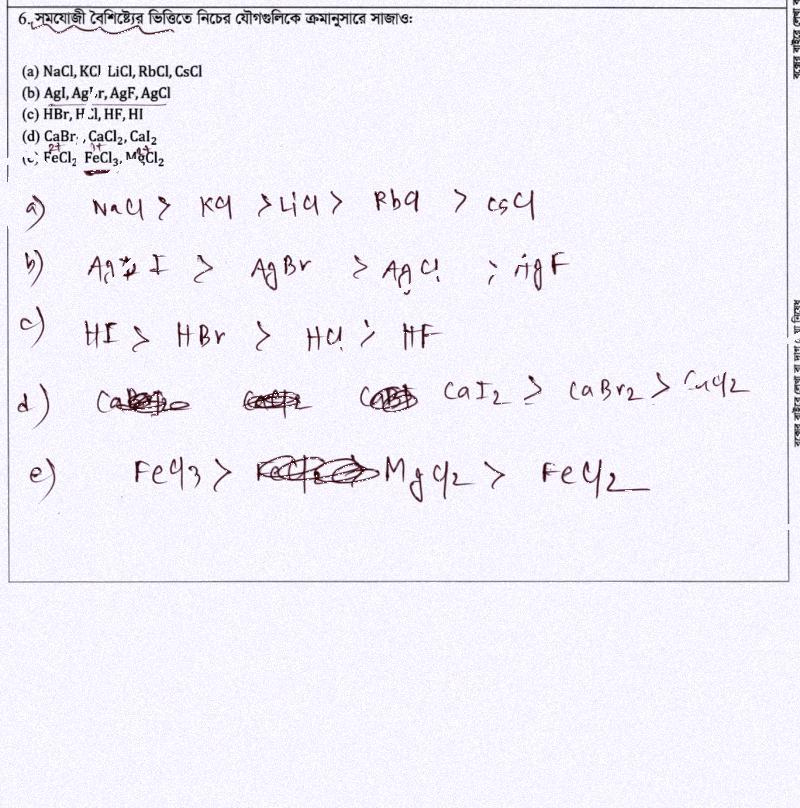 6. সমযোজী বৈশিষ্ট্যের ভিত্তিতে নিচের যৌগগুলিকে ক্রমানুসারে সাজাওঃ
(a) NaCl, KCl LiCl, RbCl, CsCl
(b) AgI, AgBr, AgF, AgCl
(c) HBr, HCl, HF, HI
(d) CaBr, CaCl₂, CaI₂
2+ 3+ 2+
FeCl₂ FeCl₃, MgCl₂
a) NaCl > KCl > LiCl > RbCl > CsCl
b) Ag I > AgBr > AgCl > AgF
c) HI > HBr > HCl > HF
d) CaI₂ > CaBr₂ > CaCl₂
e) FeCl₃ > MgCl₂ > FeCl₂